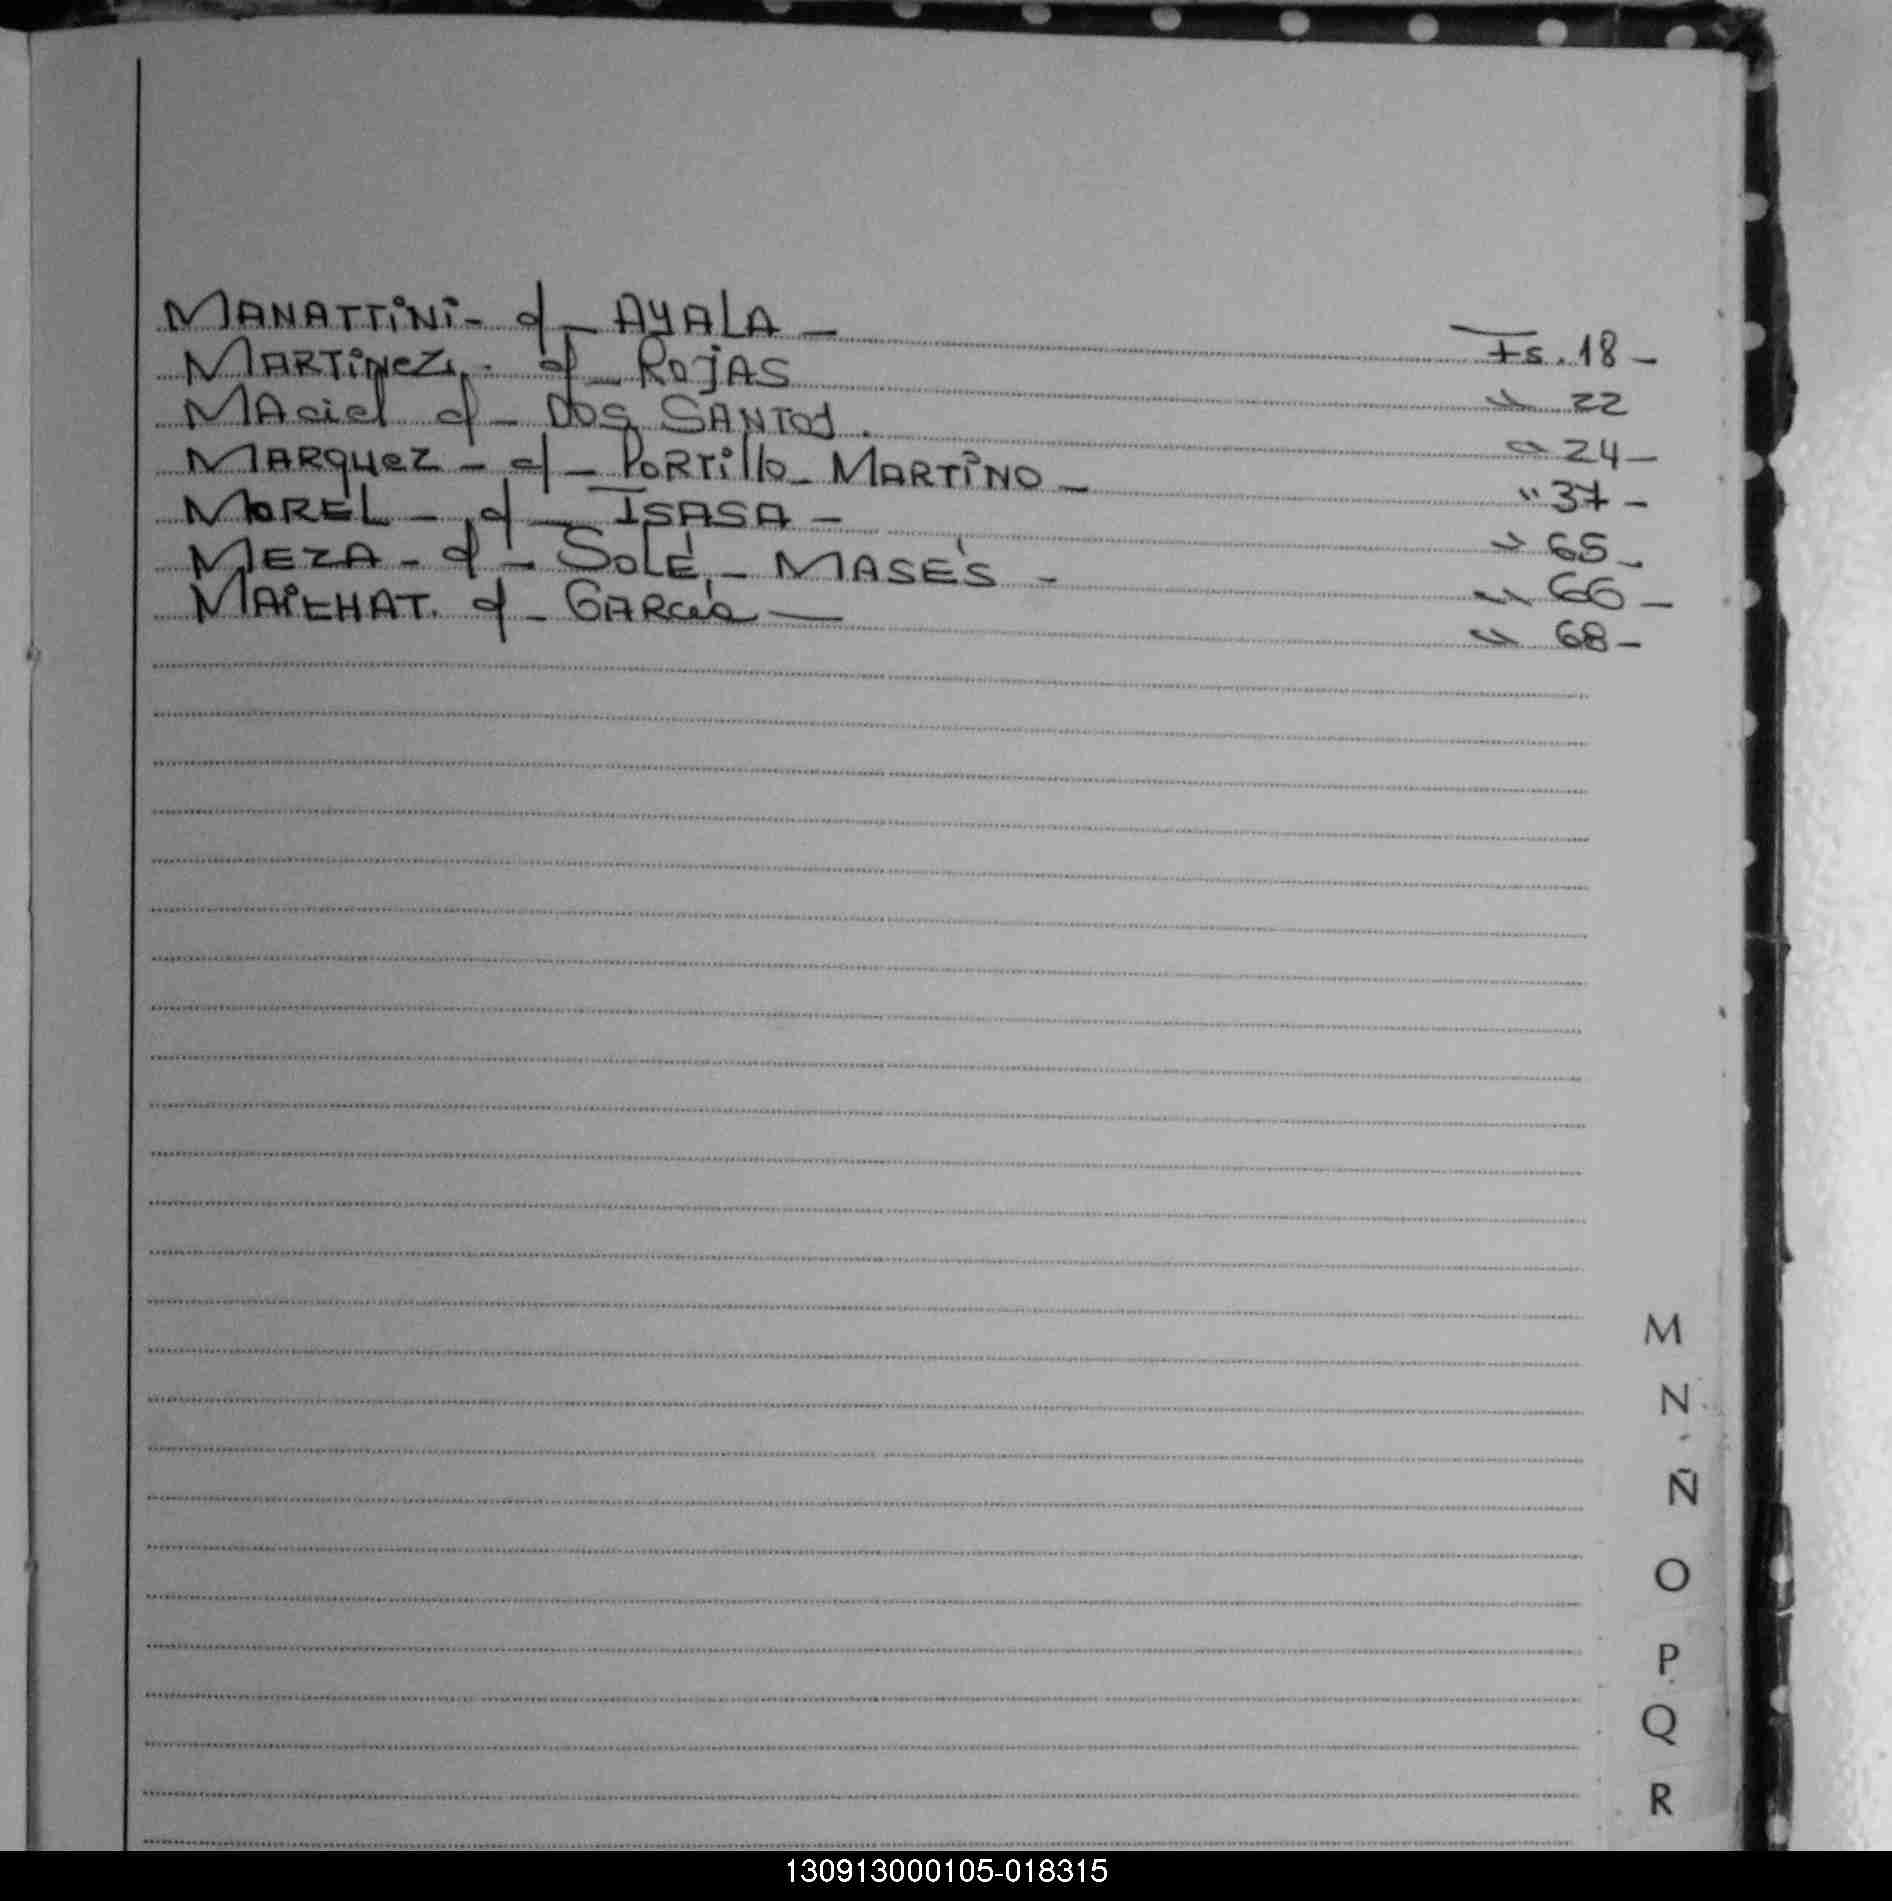 MANATTINI - c/ - AYALA - Fs. 18 -
MARTINEZ. - c/ - ROJAS " 22
MAciel c/ - DOS SANTOS. " 24 -
MARQUEZ - c/ - PORTillo - MARTINO - " 37 -
MOREL - c/ - ISASA - " 65 -
MEZA - c/ - SOLÉ - MASÉS - " 66 -
c/ - GARCíA - " 68 -
M
N
Ñ
O
P
Q
R
130913000105-018315